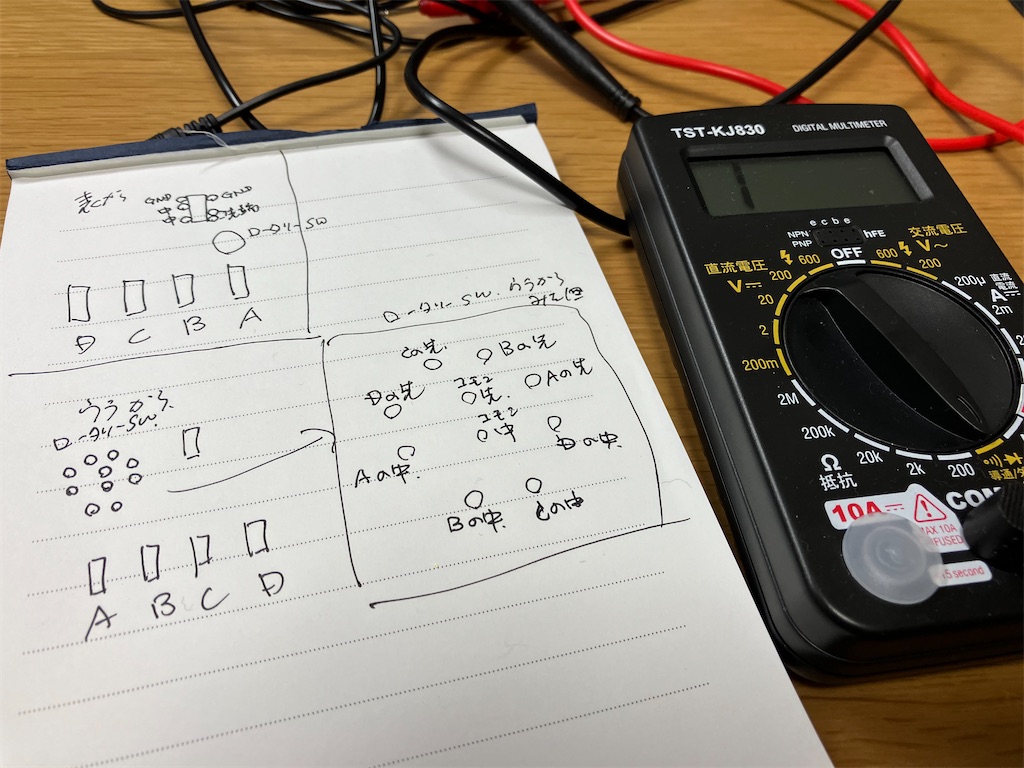 表から
GND
GND
中
先端
ロータリーSW
D C B A
うらから
ロータリーSW.
A B C D
ロータリーSW. うらから
みた図
Cの先.
Bの先
Dの先
コモン
先.
Aの先
コモン
中
Aの中.
Dの中.
Bの中.
Cの中
TST-KJ830
DIGITAL MULTIMETER
1
e c b e
NPN
PNP
hFE
直流電圧
V
交流電圧
V~
OFF
600
600
200
200
20
2
200m
200μ
直流
電流
A
2m
2M
200k
20k
2k
200
Ω
抵抗
導通/
10A
COM
MAX 10A
FUSED
5 second